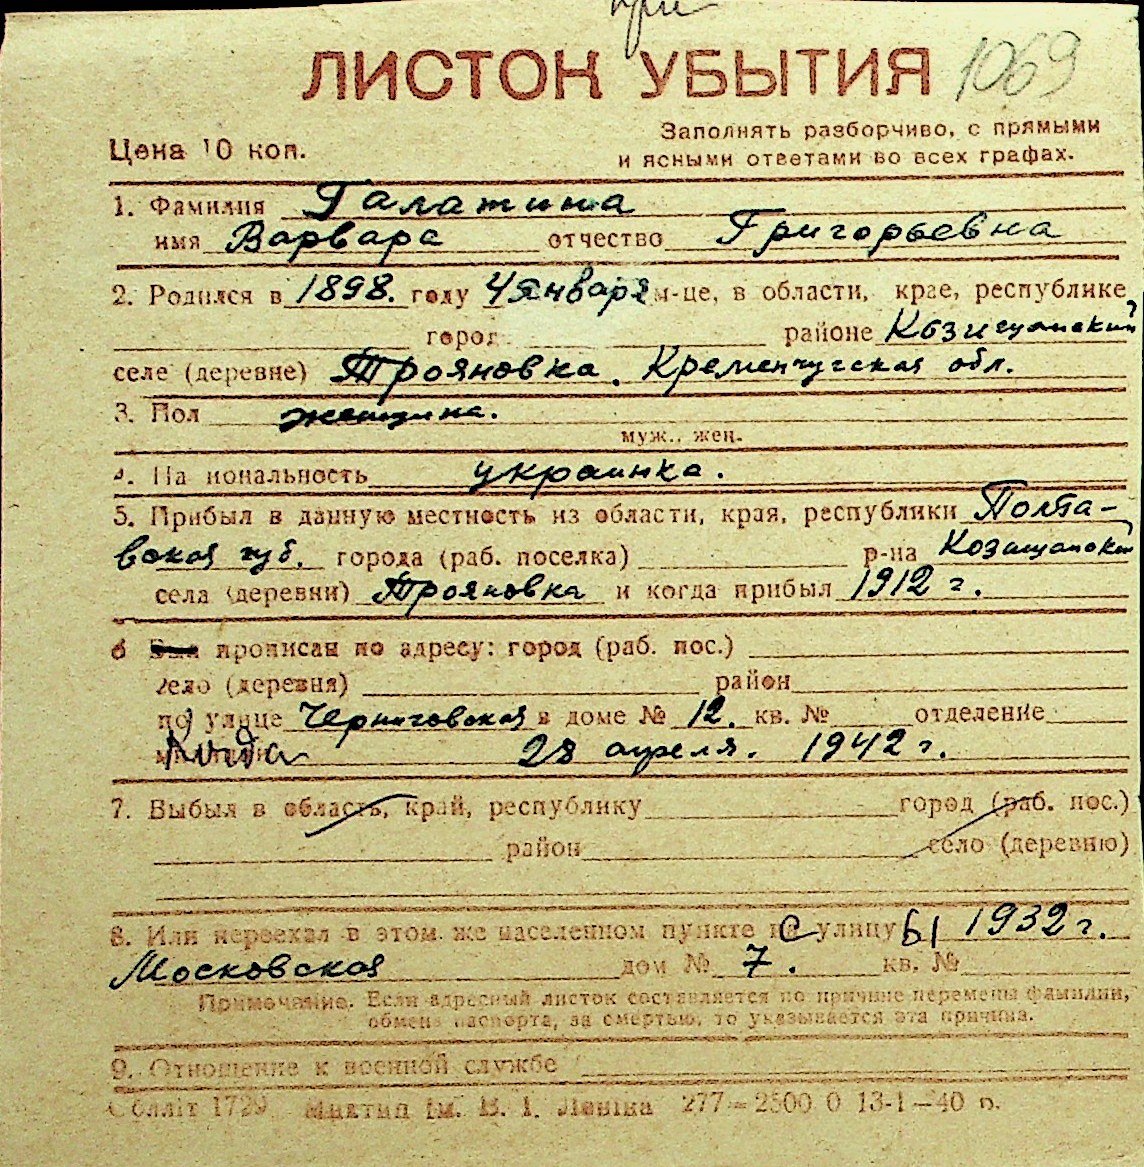 при
ЛИСТОК УБЫТИЯ 1069
Цена 10 коп.
Заполнять разборчиво, с прямыми
и ясными ответами во всех графах.
1. Фамилия Галатина
имя Варвара отчество Григорьевна
2. Родился в 1898. году 4 января м-це, в области, крае, республике,
город районе Козищанский
селе (деревне) Трояновка. Кременчугская обл.
3. Пол женщина.
муж., жен.
4. На иональность украинка.
5. Прибыл в данную местность из области, края, республики Полта-
вская губ. города (раб. поселка) р-на Козищанский
села (деревни) Трояновка и когда прибыл 1912 г.
6 прописан по адресу: город (раб. пос.)
село (деревня) район
по улице Черниговская в доме № 12. кв. № отделение
28 апреля. 1942 г.
7. Выбыл в область, край, республику город (раб. пос.)
район село (деревню)
8. Или переехал в этом же населенном пункте с улицы 1932 г.
Московская дом № 7. кв. №
Примечание. Если адресный листок составляется по причине перемены фамилии,
обмена паспорта, за смертью, то указывается эта причина.
9. Отношение к военной службе
Обллiт 1729 iм. В. I. Ленiна 277—2500 0 13-1—40 р.